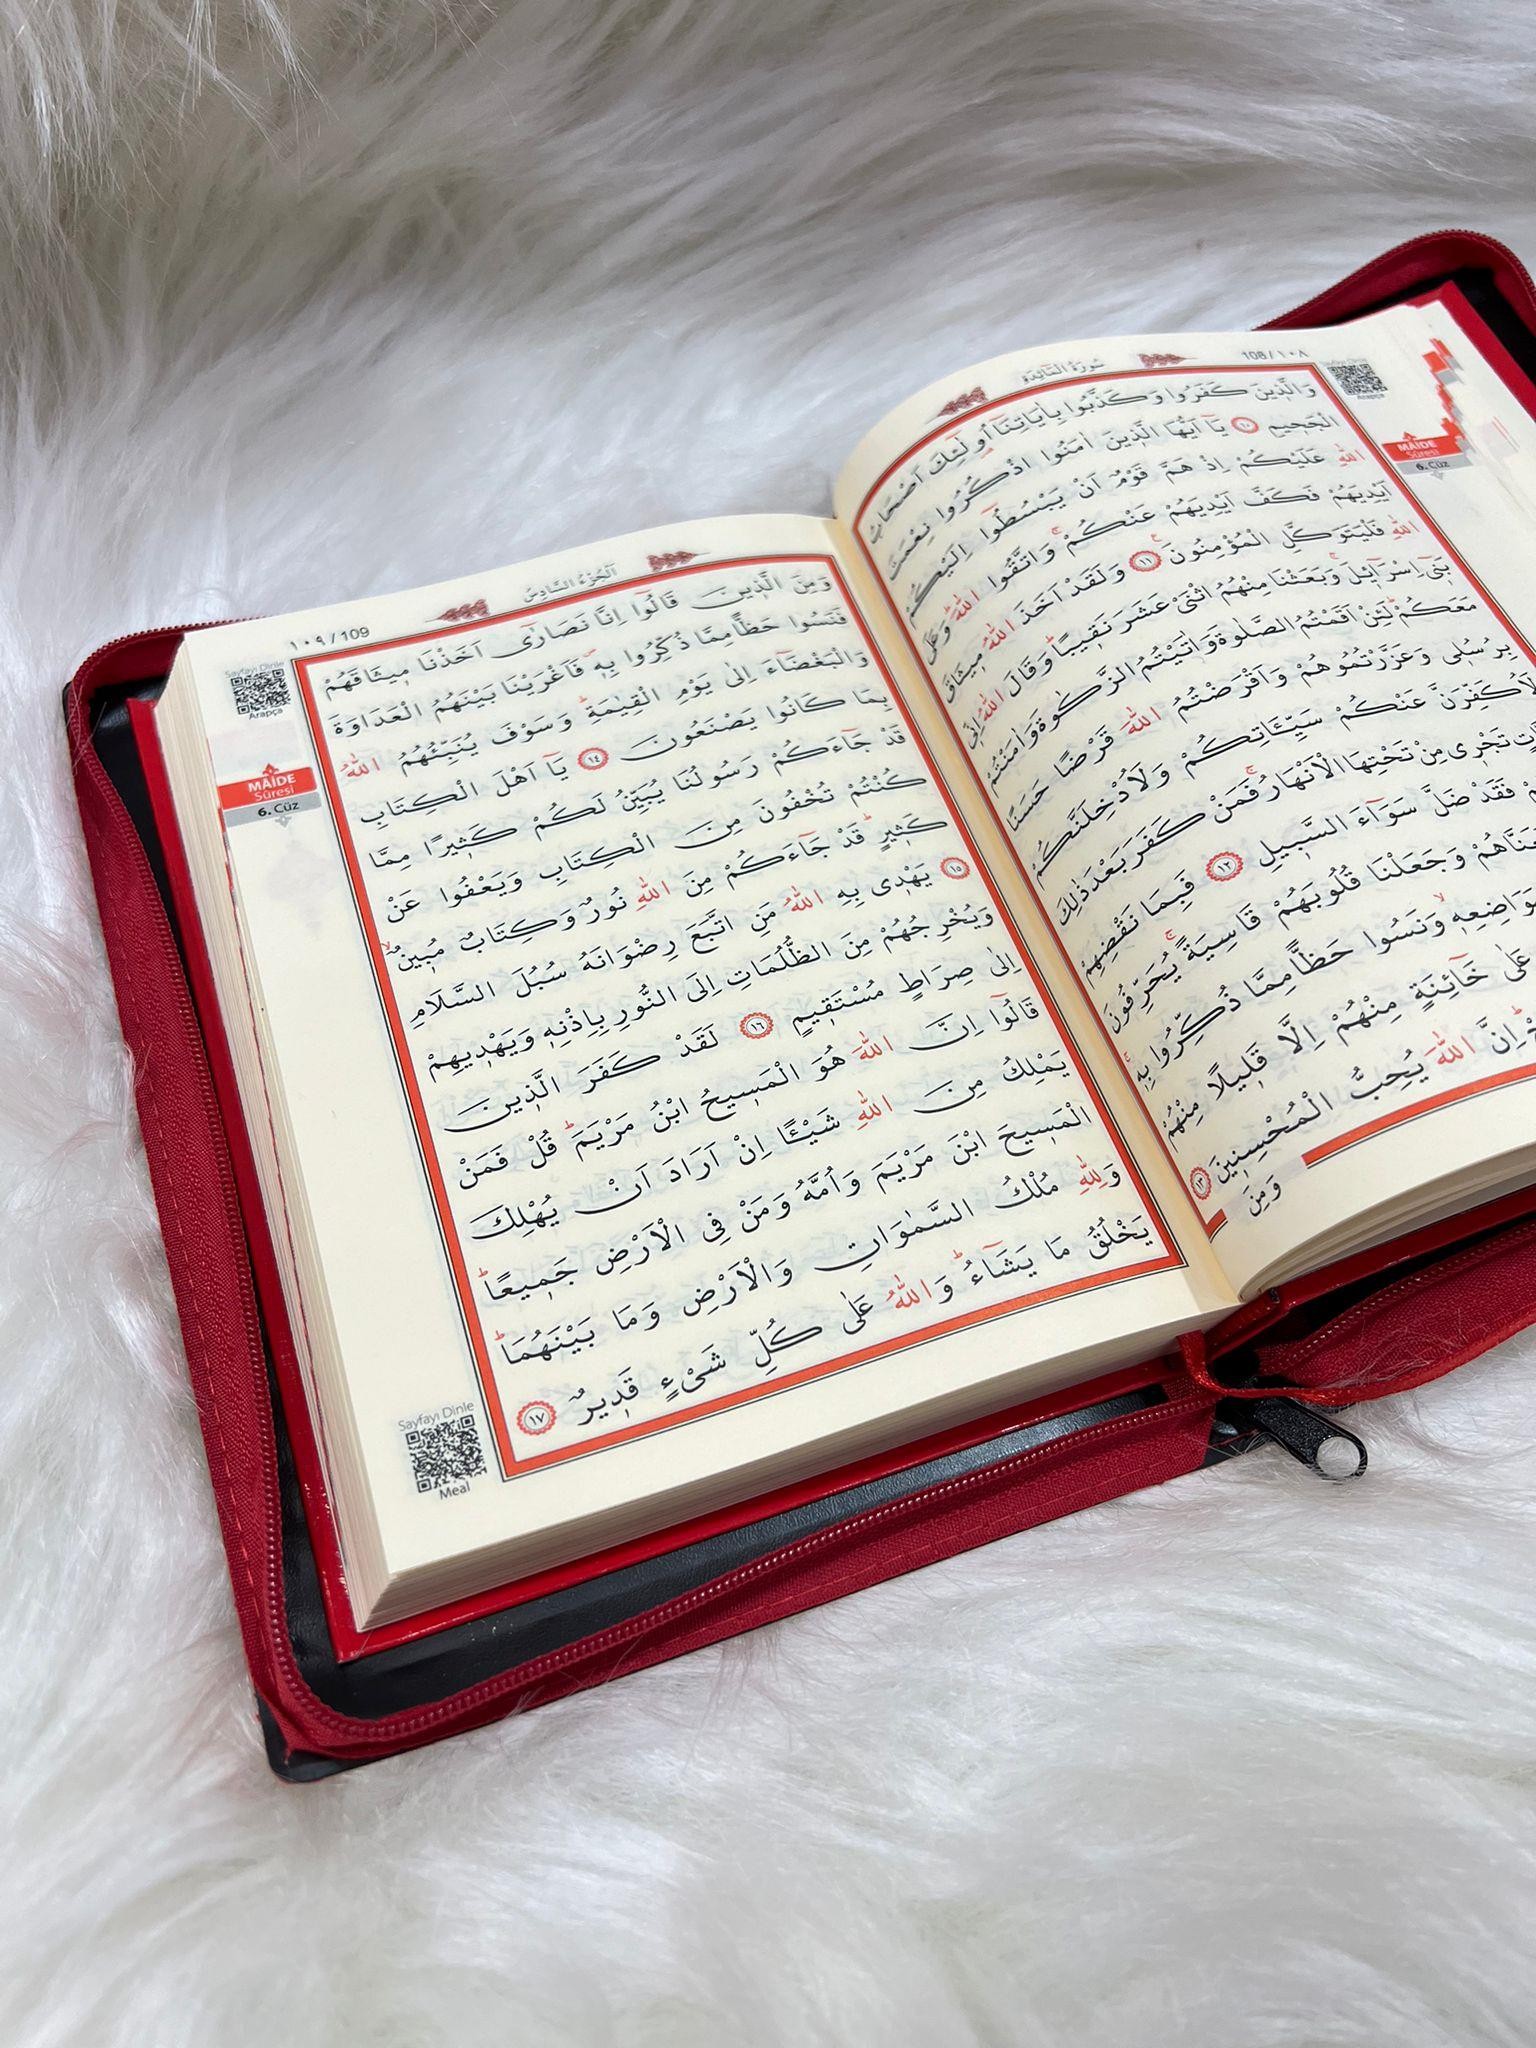 108 / ١٠٨
سُورَةُ الْمَائِدَةِ
Sayfayı Dinle
Arapça
MÂİDE
Sûresi
6. Cüz
وَالَّذٖينَ كَفَرُوا وَكَذَّبُوا بِاٰيَاتِنَٓا اُو۬لٰٓئِكَ اَصْحَابُ
الْجَحٖيمِ ١٠ يَٓا اَيُّهَا الَّذٖينَ اٰمَنُوا اذْكُرُوا نِعْمَتَ
اللّٰهِ عَلَيْكُمْ اِذْ هَمَّ قَوْمٌ اَنْ يَبْسُطُٓوا اِلَيْكُمْ
اَيْدِيَهُمْ فَكَفَّ اَيْدِيَهُمْ عَنْكُمْۚ وَاتَّقُوا اللّٰهَؕ وَعَلَى
اللّٰهِ فَلْيَتَوَكَّلِ الْمُؤْمِنُونَࣖ ١١ وَلَقَدْ اَخَذَ اللّٰهُ مٖيثَاقَ
بَنٖٓي اِسْرَٓائٖلَۚ وَبَعَثْنَا مِنْهُمُ اثْنَيْ عَشَرَ نَقٖيبًاؕ وَقَالَ اللّٰهُ اِنّٖي
مَعَكُمْؕ لَئِنْ اَقَمْتُمُ الصَّلٰوةَ وَاٰتَيْتُمُ الزَّكٰوةَ وَاٰمَنْتُمْ
بِرُسُلٖي وَعَزَّرْتُمُوهُمْ وَاَقْرَضْتُمُ اللّٰهَ قَرْضًا حَسَنًا
لَاُكَفِّرَنَّ عَنْكُمْ سَيِّـَٔاتِكُمْ وَلَاُدْخِلَنَّكُمْ
تَجْرٖي مِنْ تَحْتِهَا الْاَنْهَارُۚ فَمَنْ كَفَرَ بَعْدَ ذٰلِكَ
فَقَدْ ضَلَّ سَوَٓاءَ السَّبٖيلِ ١٢ فَبِمَا نَقْضِهِمْ
وَجَعَلْنَا قُلُوبَهُمْ قَاسِيَةًۚ يُحَرِّفُونَ
مَوَاضِعِهٖۙ وَنَسُوا حَظًّا مِمَّا ذُكِّرُوا بِهٖۚ
عَلٰى خَٓائِنَةٍ مِنْهُمْ اِلَّا قَلٖيلًا مِنْهُمْ
اِنَّ اللّٰهَ يُحِبُّ الْمُحْسِنٖينَ ١٣
وَمِنَ
١٠٩ / 109
اَلْجُزْءُ السَّادِسُ
Sayfayı Dinle
Arapça
MÂİDE
Sûresi
6. Cüz
وَمِنَ الَّذٖينَ قَالُٓوا اِنَّا نَصَارٰٓى اَخَذْنَا مٖيثَاقَهُمْ
فَنَسُوا حَظًّا مِمَّا ذُكِّرُوا بِهٖ فَاَغْرَيْنَا بَيْنَهُمُ الْعَدَاوَةَ
وَالْبَغْضَٓاءَ اِلٰى يَوْمِ الْقِيٰمَةِؕ وَسَوْفَ يُنَبِّئُهُمُ اللّٰهُ
بِمَا كَانُوا يَصْنَعُونَ ١٤ يَٓا اَهْلَ الْكِتَابِ
قَدْ جَٓاءَكُمْ رَسُولُنَا يُبَيِّنُ لَكُمْ كَثٖيرًا مِمَّا
كُنْتُمْ تُخْفُونَ مِنَ الْكِتَابِ وَيَعْفُوا عَنْ
كَثٖيرٍؕ قَدْ جَٓاءَكُمْ مِنَ اللّٰهِ نُورٌ وَكِتَابٌ مُبٖينٌۙ
١٥ يَهْدٖي بِهِ اللّٰهُ مَنِ اتَّبَعَ رِضْوَانَهُ سُبُلَ السَّلَامِ
وَيُخْرِجُهُمْ مِنَ الظُّلُمَاتِ اِلَى النُّورِ بِاِذْنِهٖ وَيَهْدٖيهِمْ
اِلٰى صِرَاطٍ مُسْتَقٖيمٍ ١٦ لَقَدْ كَفَرَ الَّذٖينَ
قَالُٓوا اِنَّ اللّٰهَ هُوَ الْمَسٖيحُ ابْنُ مَرْيَمَؕ قُلْ فَمَنْ
يَمْلِكُ مِنَ اللّٰهِ شَيْـًٔا اِنْ اَرَادَ اَنْ يُهْلِكَ
الْمَسٖيحَ ابْنَ مَرْيَمَ وَاُمَّهُ وَمَنْ فِي الْاَرْضِ جَمٖيعًاؕ
وَلِلّٰهِ مُلْكُ السَّمٰوَاتِ وَالْاَرْضِ وَمَا بَيْنَهُمَاؕ
يَخْلُقُ مَا يَشَٓاءُؕ وَاللّٰهُ عَلٰى كُلِّ شَيْءٍ قَدٖيرٌ ١٧
Sayfayı Dinle
Meal